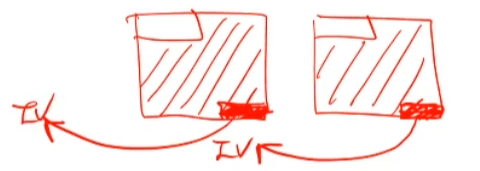 IV
IV